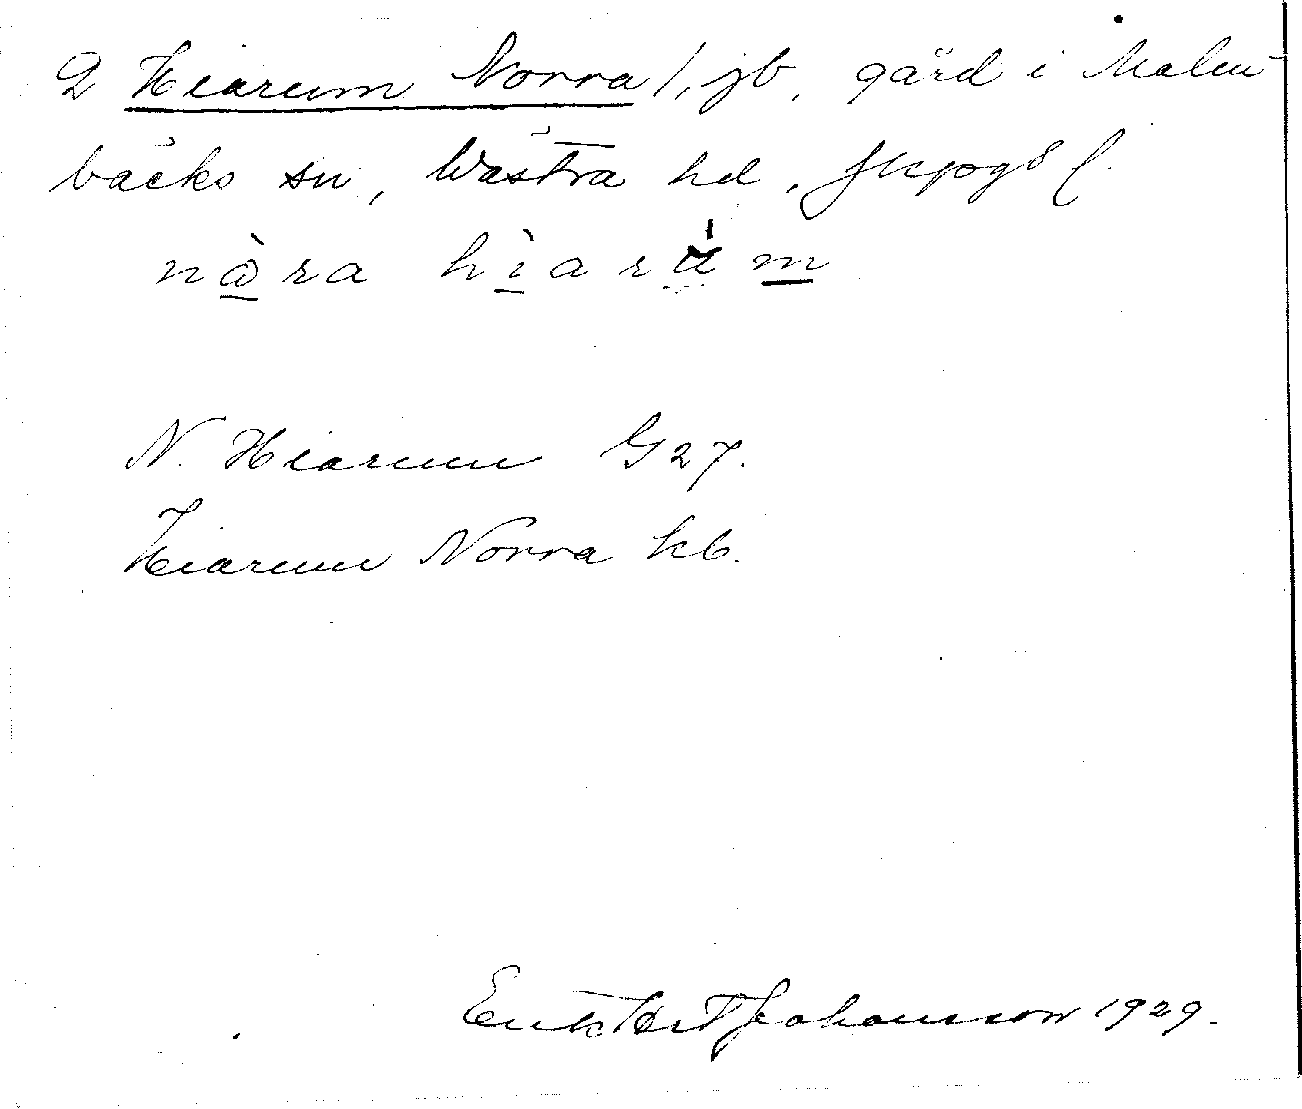 2 Hiarum Norra 1, jb, gård i Malm-
bäcks sn, Västra hd, Jkpgs l.
nạ̀ra hìarúm
N. Hiarum G 27.
Hiarum Norra kb.
Johansson 1929.